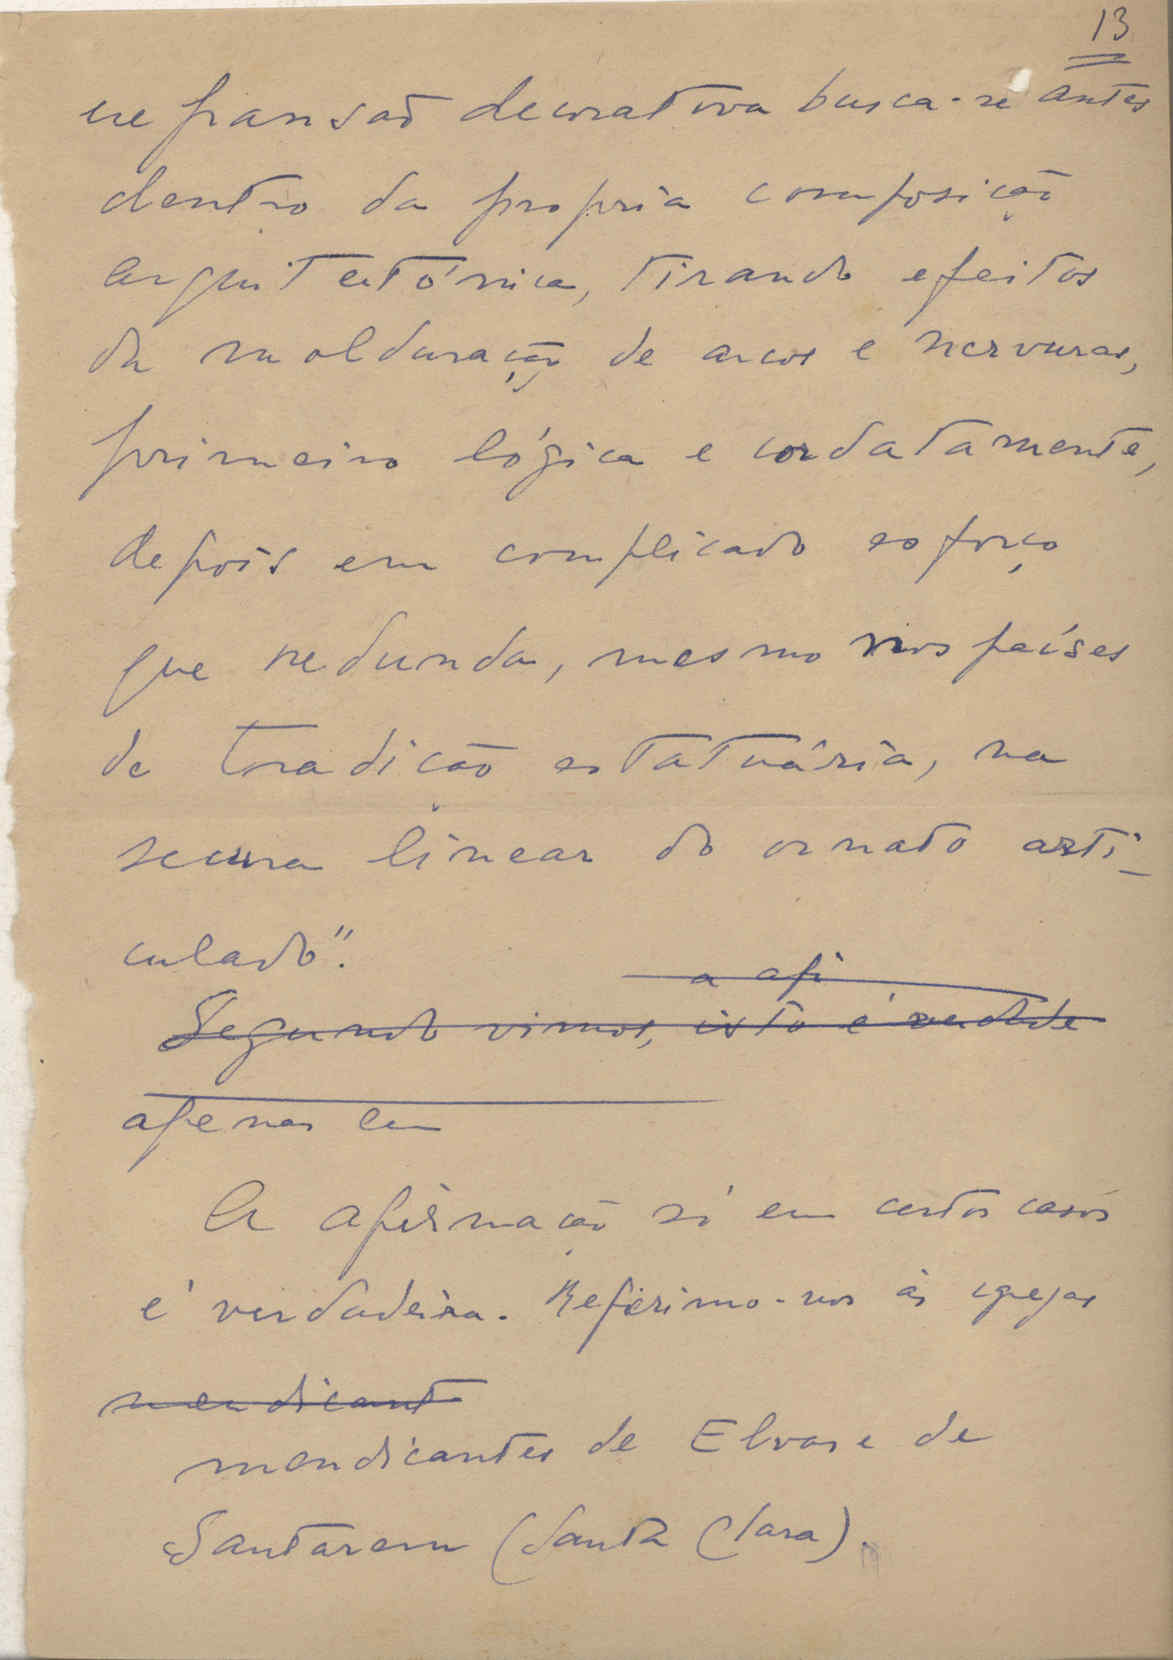 13
expansão decorativa busca-se antes
dentro da propria composição
arquitectónica, tirando efeitos
da molduração de arcos e nervuras,
primeiro lógica e cordatamente,
depois em complicado esforço
que redunda, mesmo nos países
de tradição estatuária, na
secura linear do ornato arti-
culado".
a afi
Segundo vimos, isto é verdade
apenas em
A afirmação só em certos casos
é verdadeira. Referimo-nos às igrejas
mendicant
mendicantes de Elvas e de
Santarem (Santa Clara).